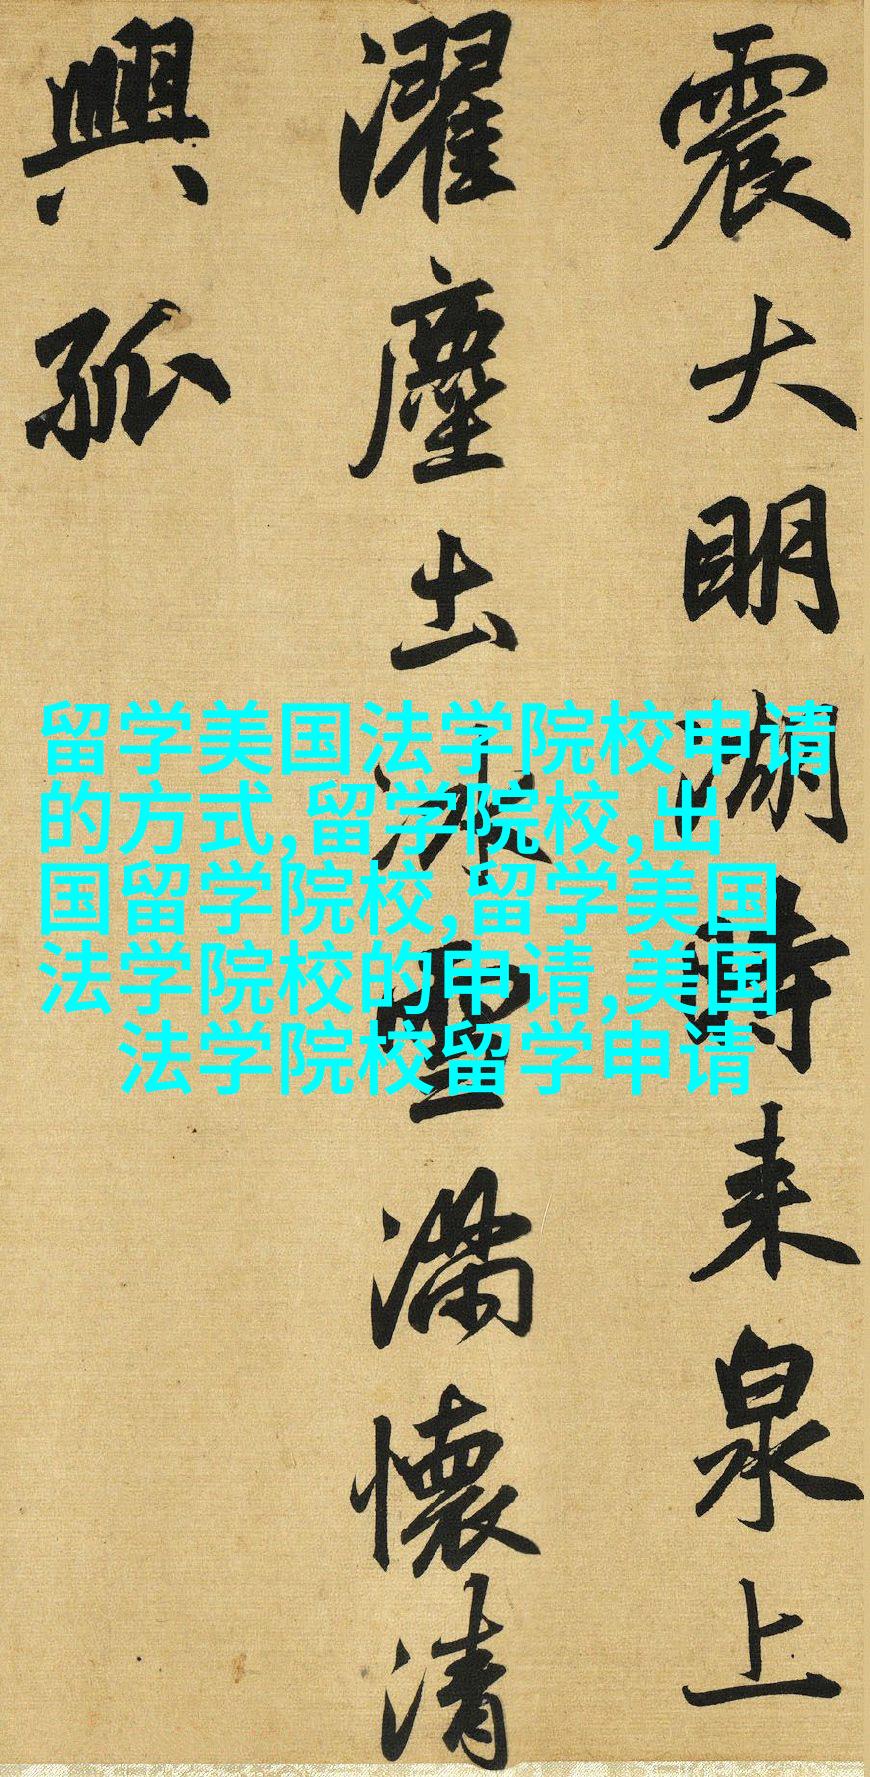 震大明湖時来泉上
濯塵出冰雪滿懷清
興孤
留学美国法学院校申请
的方式,留学院校,出
国留学院校,留学美国
法学院校的申请,美国
法学院校留学申请